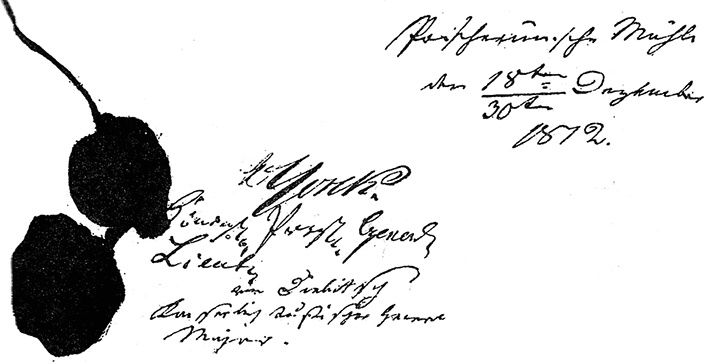 Poscherun'sche Mühle
den 18ten Dezember
30ten
1812.
v. Yorck.
Königl. Preuß. General
Lieut.
von Diebitsch
Kaiserlich russischer General
Major.